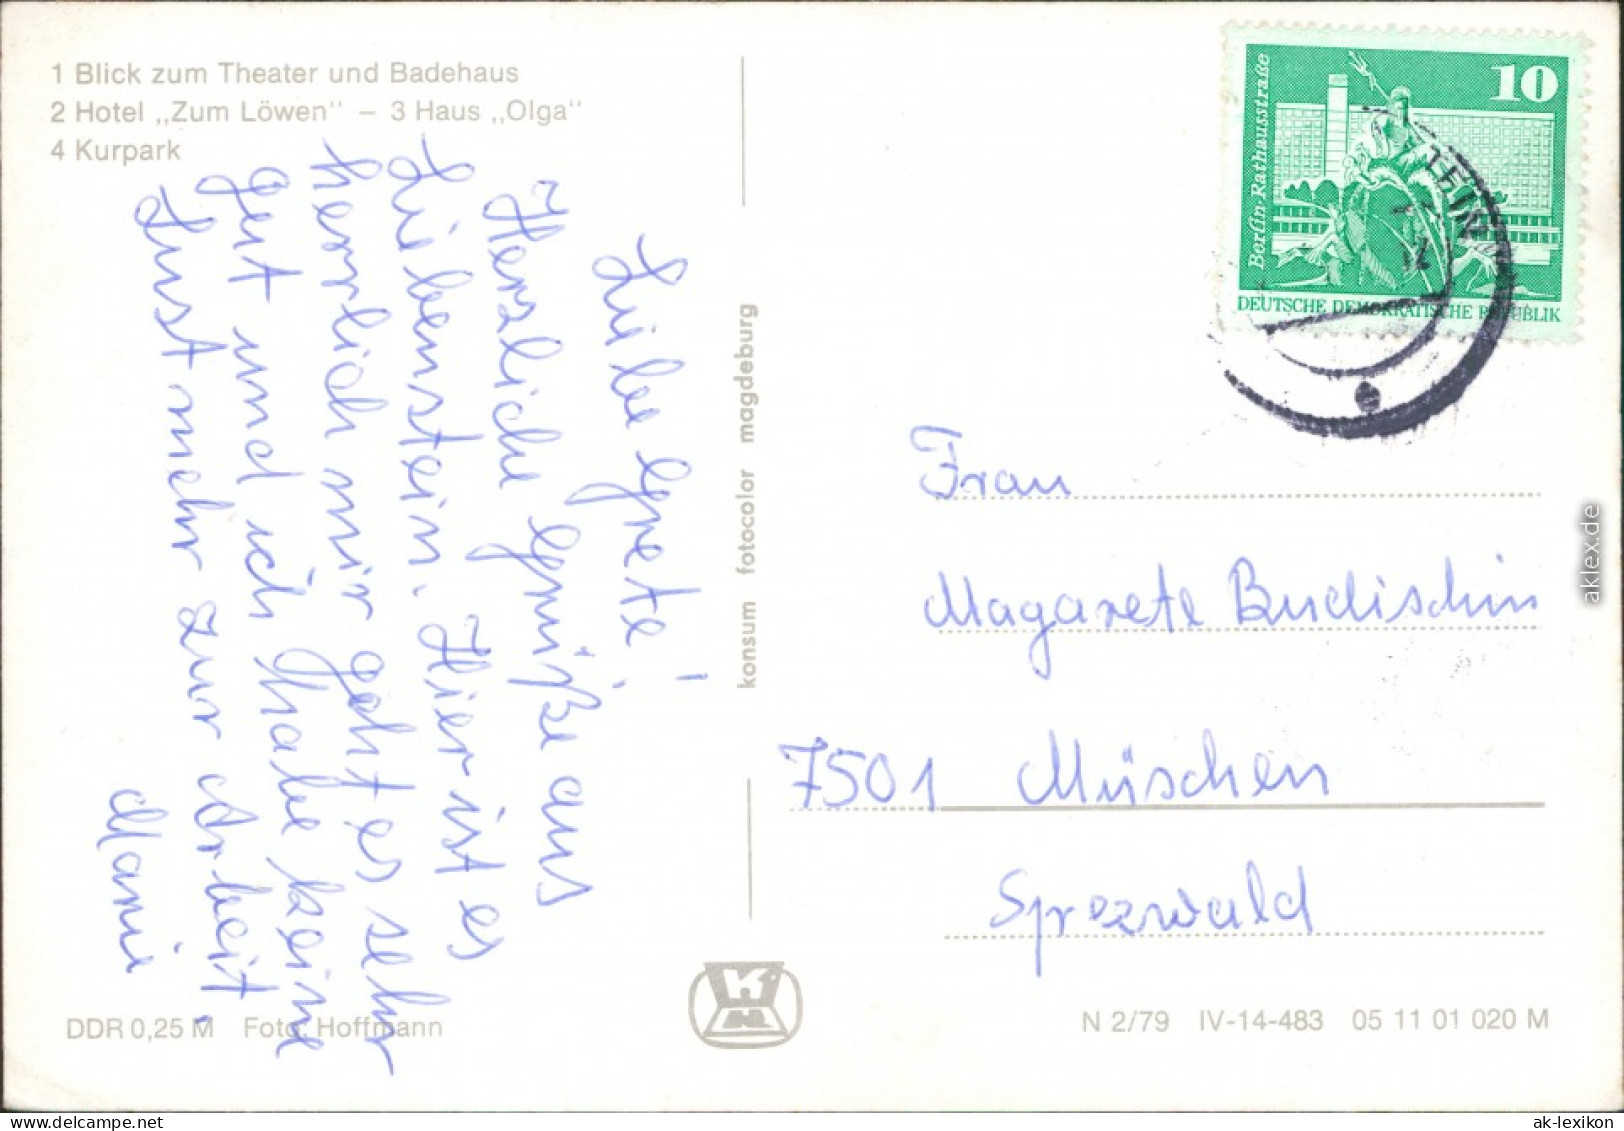 1 Blick zum Theater und Badehaus
2 Hotel „Zum Löwen" – 3 Haus „Olga"
4 Kurpark
Liebe Grete!
Herzliche Grüße aus
Liebenstein. Hier ist es
herrlich mir geht es sehr
gut und ich habe keine
Lust mehr zur Arbeit.
Mami
konsum fotocolor magdeburg
DDR 0,25 M Foto: Hoffmann
10
Berlin-Rathausstraße
DEUTSCHE DEMOKRATISCHE REPUBLIK
TEIN
Frau
Magarete Budischin
7501 Müschen
Sprezwald
N 2/79 IV-14-483 05 11 01 020 M
aklex.de
ak-lexikon